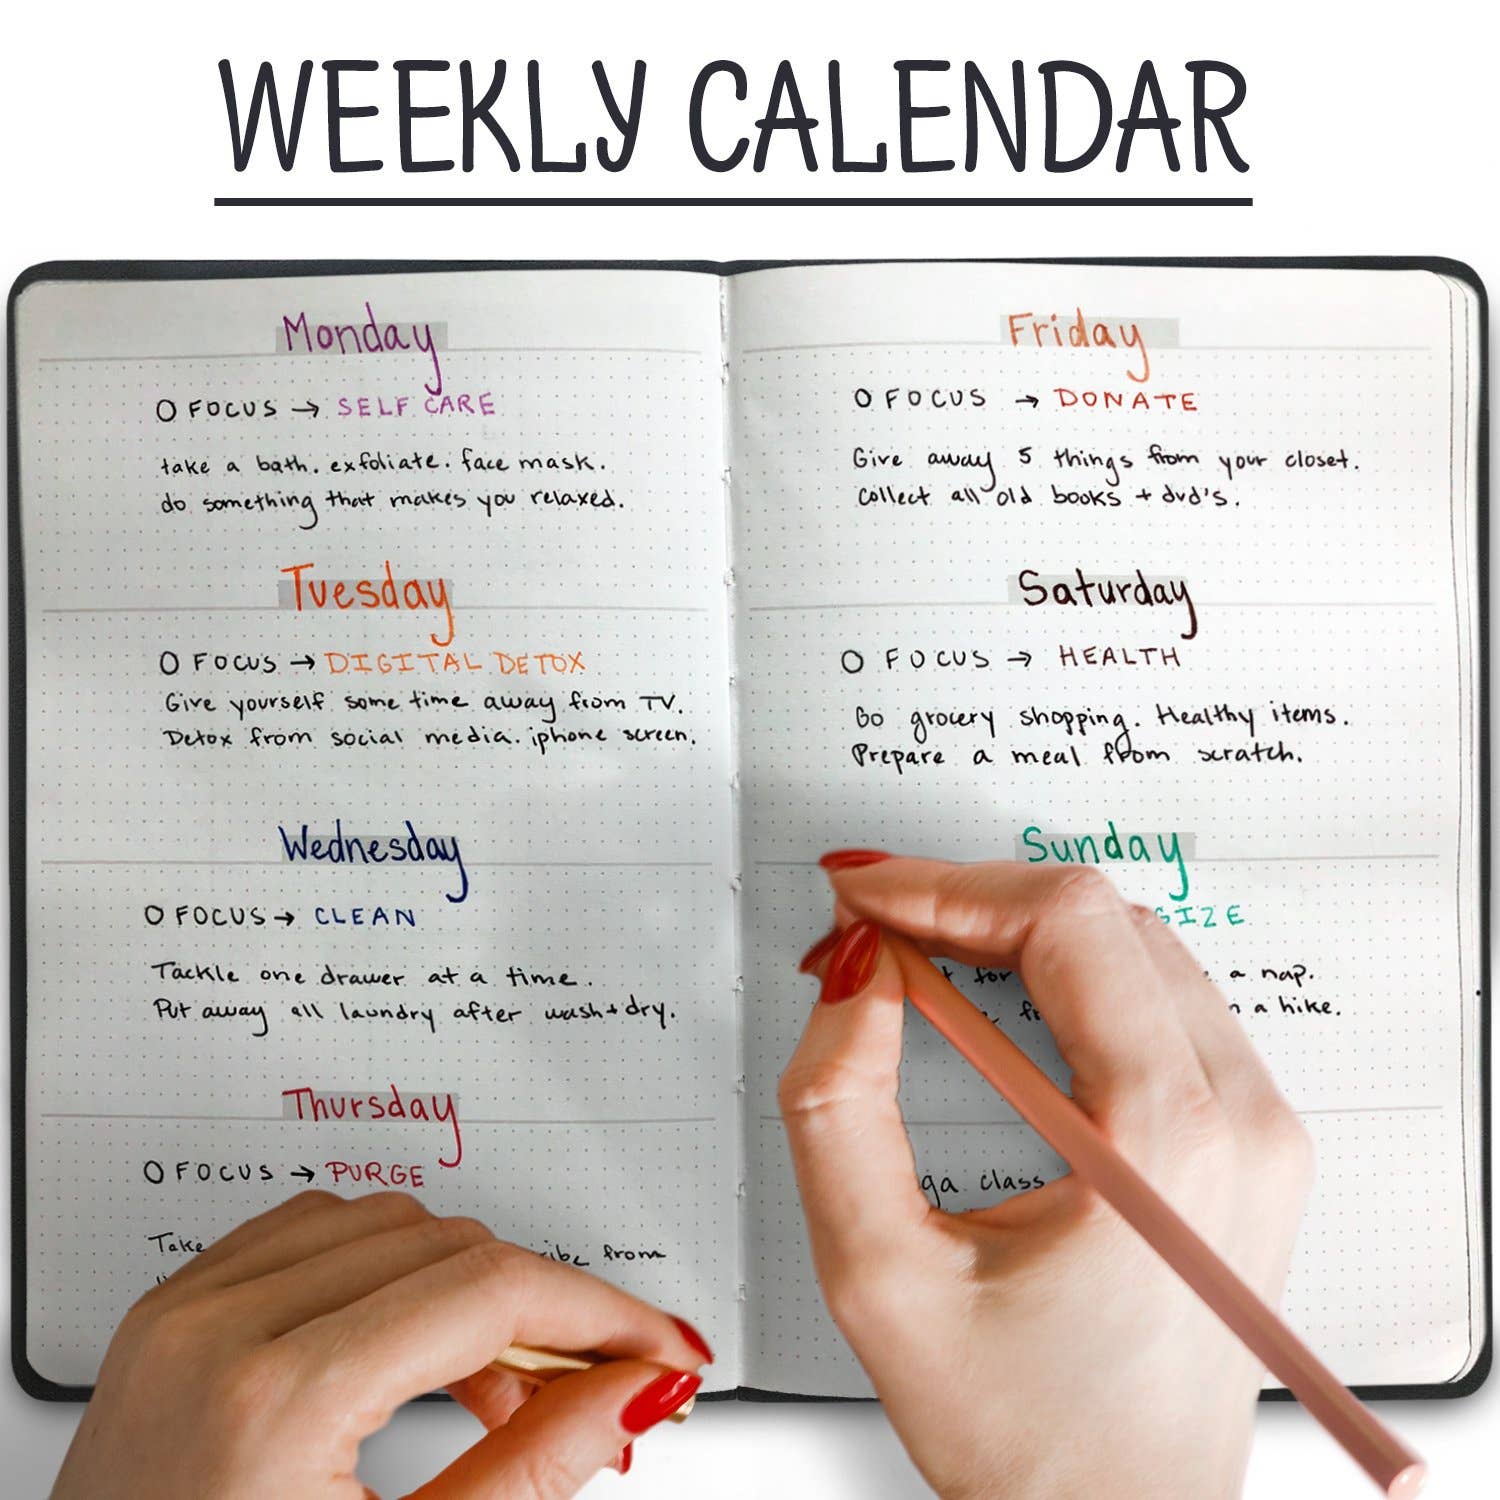 WEEKLY CALENDAR
Monday
O FOCUS → SELF CARE
take a bath. exfoliate. face mask.
do something that makes you relaxed.
Tuesday
O FOCUS → DIGITAL DETOX
Give yourself some time away from TV.
Detox from social media. iphone screen.
Wednesday
O FOCUS → CLEAN
Tackle one drawer at a time.
Put away all laundry after wash + dry.
Thursday
O FOCUS → PURGE
Take from
Friday
O FOCUS → DONATE
Give away 5 things from your closet.
Collect all old books + dvd's.
Saturday
O FOCUS → HEALTH
Go grocery shopping. Healthy items.
Prepare a meal from scratch.
Sunday
for a nap.
a hike.
class